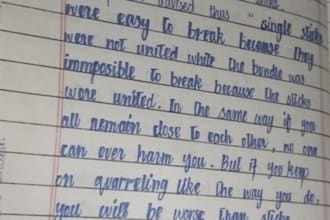 thus "single sticks
were easy to break because they
were not united while the bundle was
immposible to break because the sticks
were united. In the same way if you
all remain close to each other, no one
can ever harm you. But if you keep
on quarreling like the way you do,
you will be worse than sticks